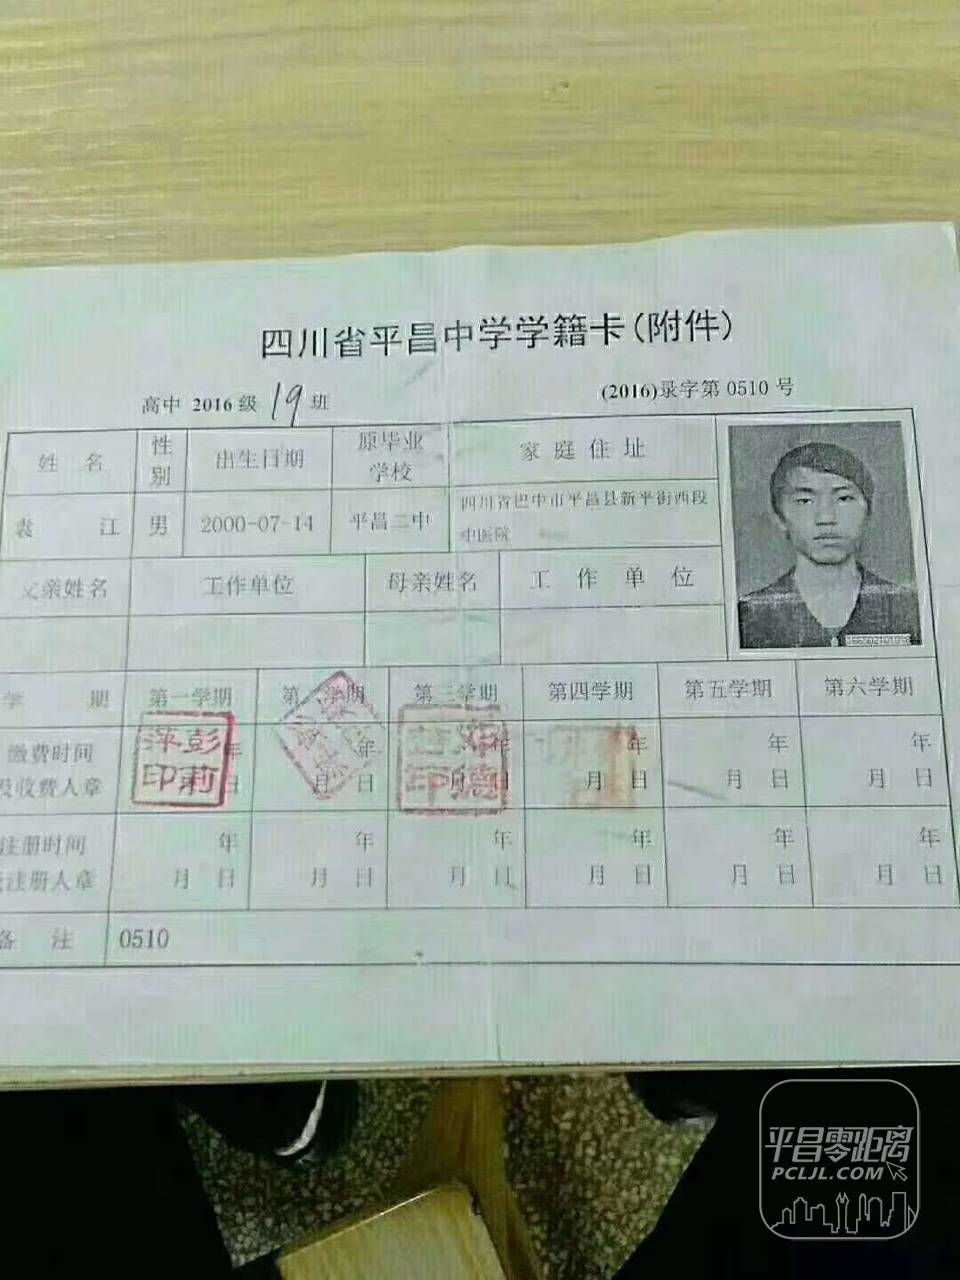 四川省平昌中学学籍卡(附件)
高中 2016 级 19 班 (2016)录字第 0510 号
姓 名 性别 出生日期 原毕业学校 家庭住址
袁 江 男 2000-07-14 平昌二中 四川省巴中市平昌县新平街西段
中医院
父亲姓名 工作单位 母亲姓名 工作单位
学 期 第一学期 第 学期 第三学期 第四学期 第五学期 第六学期
缴费时间 年 年 年 年 年 年
及收费人章 日 月 日 月 日 月 日 月 日 月 日
彭莉萍印
注册时间 年 年 年 年 年 年
注册人章 月 日 月 日 月 日 月 日 月 日 月 日
备 注 0510
平昌零距离
PCLJL.COM